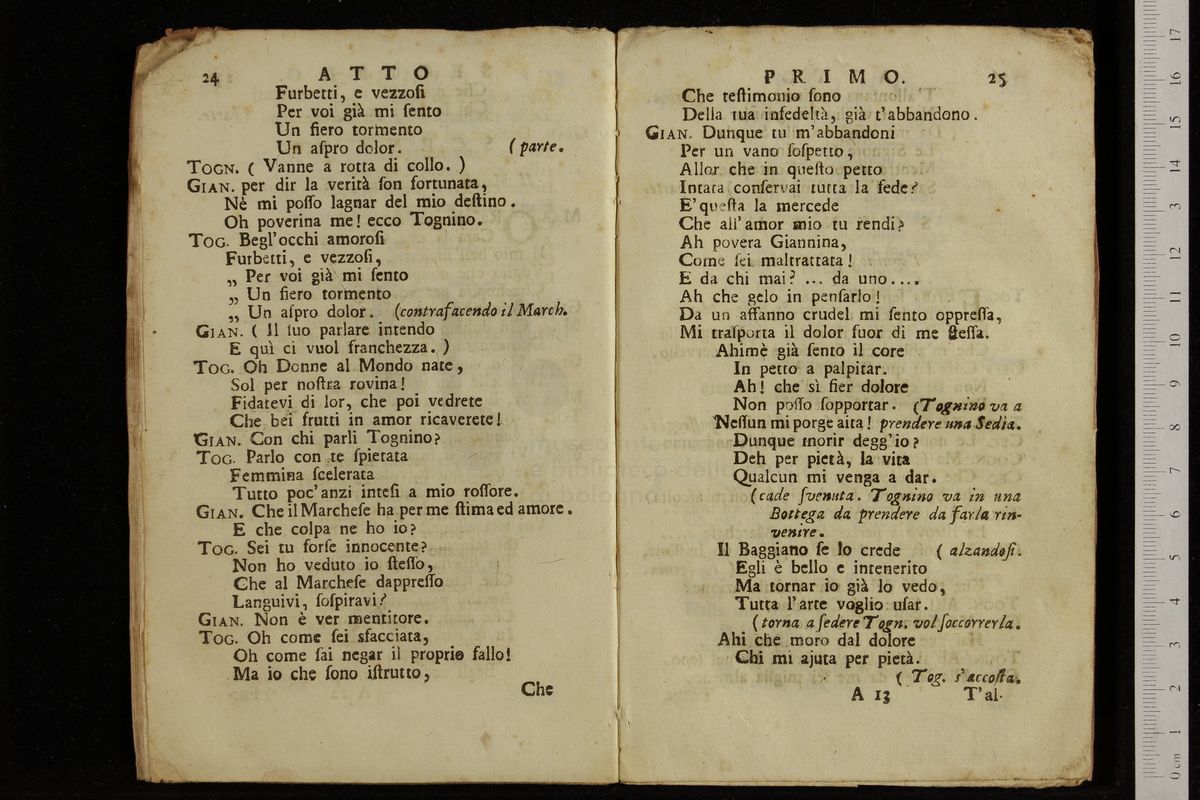 24 A T T O
Furbetti, e vezzoſi
Per voi già mi ſento
Un fiero tormento
Un aſpro dolor. (parte.
TOGN. ( Vanne a rotta di collo. )
GIAN. per dir la verità ſon fortunata,
Nè mi poſſo lagnar del mio deſtino.
Oh poverina me! ecco Tognino.
TOG. Begl'occhi amoroſi
Furbetti, e vezzoſi,
„ Per voi già mi ſento
„ Un fiero tormento
„ Un aſpro dolor. (contrafacendo il March.
GIAN. ( Il tuo parlare intendo
E quì ci vuol franchezza. )
TOG. Oh Donne al Mondo nate,
Sol per noſtra rovina!
Fidatevi di lor, che poi vedrete
Che bei frutti in amor ricaverete!
GIAN. Con chi parli Tognino?
TOG. Parlo con te ſpietata
Femmina ſcelerata
Tutto poc'anzi inteſi a mio roſſore.
GIAN. Che il Marcheſe ha per me ſtima ed amore.
E che colpa ne ho io?
TOG. Sei tu forſe innocente?
Non ho veduto io ſteſſo,
Che al Marcheſe dappreſſo
Languivi, ſoſpiravi?
GIAN. Non è ver mentitore.
TOG. Oh come ſei sfacciata,
Oh come ſai negar il proprio fallo!
Ma io che ſono iſtrutto,
Che
P R I M O. 25
Che teſtimonio ſono
Della tua infedeltà, già t'abbandono.
GIAN. Dunque tu m'abbandoni
Per un vano ſoſpetto,
Allor che in queſto petto
Intata conſervai tutta la fede?
E' queſta la mercede
Che all'amor mio tu rendi?
Ah povera Giannina,
Come ſei maltrattata!
E da chi mai? ... da uno....
Ah che gelo in penſarlo!
Da un affanno crudel mi ſento oppreſſa,
Mi traſporta il dolor fuor di me ſteſſa.
Ahimè già ſento il core
In petto a palpitar.
Ah! che sì fier dolore
Non poſſo ſopportar. (Tognino va a
Neſſun mi porge aita! prendere una Sedia.
Dunque morir degg'io?
Deh per pietà, la vita
Qualcun mi venga a dar.
(cade ſvenuta. Tognino va in una
Bottega da prendere da farla rin-
venire.
Il Baggiano ſe lo crede ( alzandoſi.
Egli è bello e intenerito
Ma tornar io già lo vedo,
Tutta l'arte voglio uſar.
( torna a ſedere Togn. vol ſoccorrerla.
Ahi che moro dal dolore
Chi mi ajuta per pietà.
( Tog. s'accoſta.
A 13 T'al-
museo internazionale
e biblioteca della
di bologna
0 cm 1 2 3 4 5 6 7 8 9 10 11 12 13 14 15 16 17